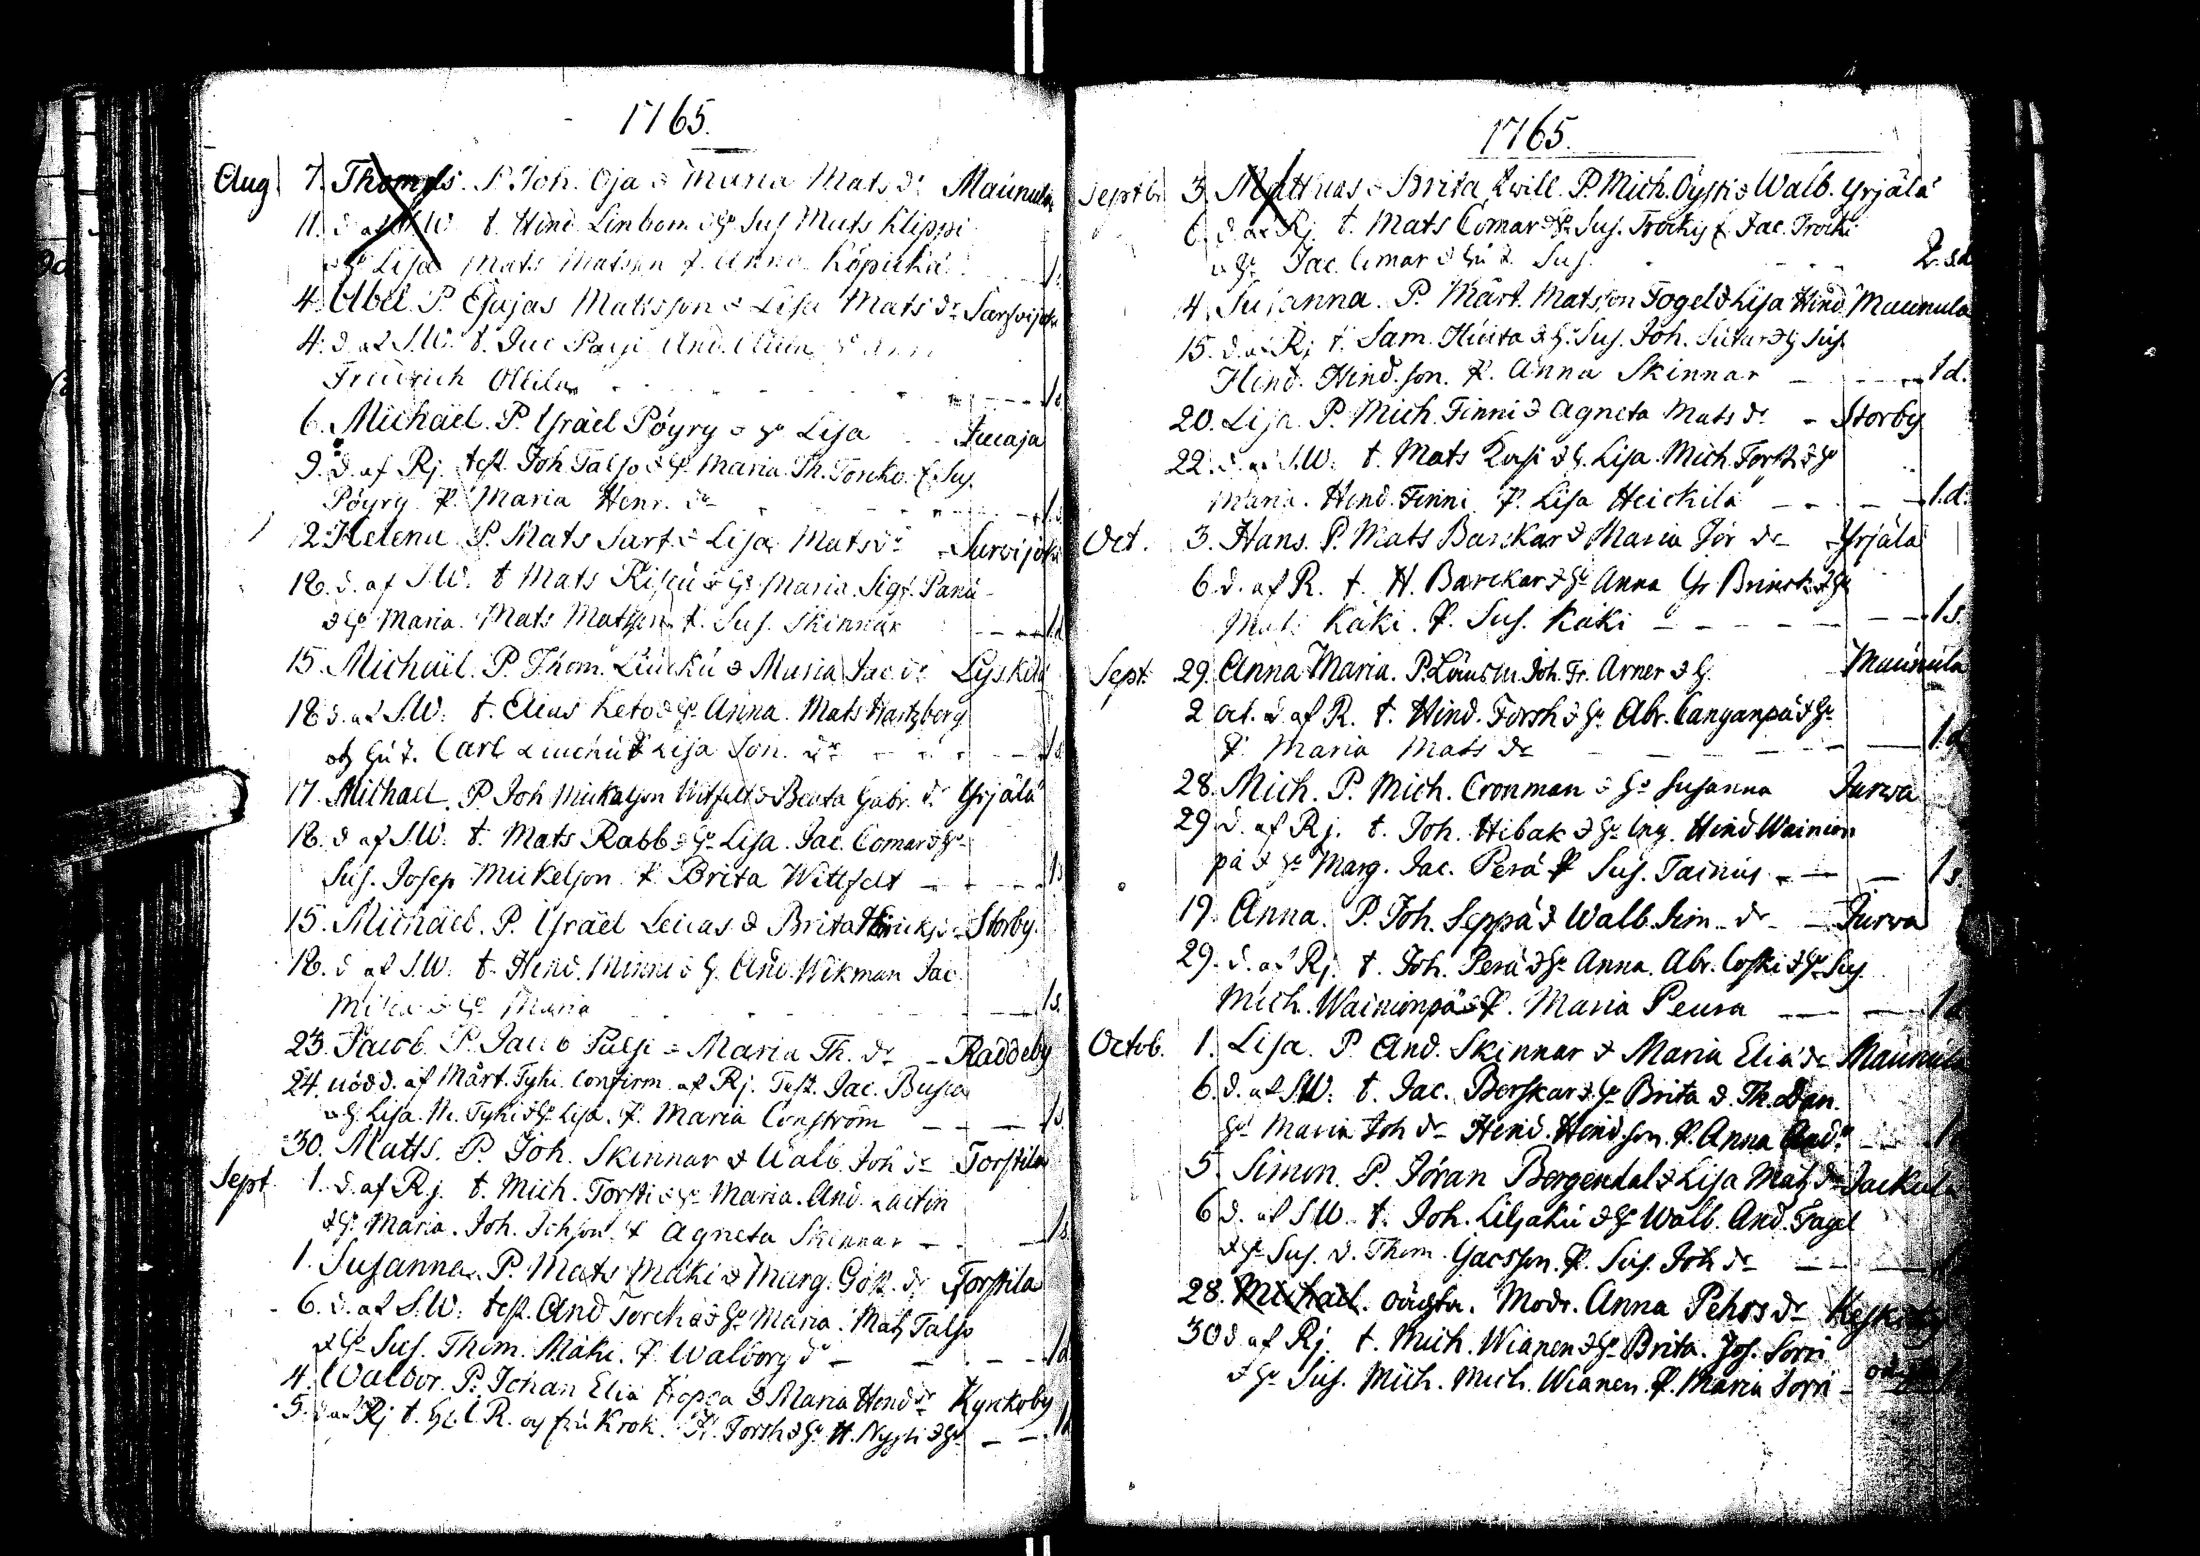 1765.
Aug. 7. Thomas. P. Joh. Oja & Maria Mats dr Maunula
11. d. af S.W. t. Hind. Linbom & hu Sus. Mats Klippi
& hu Lisa Mats Matsson f. Anna Köpickä 1 s.
4. Abel P. Esajas Matsson & Lisa Mats dr Sarfvijoki
4. d. af S.W. t. Jac. And.
Friedrich Ollila 1 s.
6. Michael. P. Ysrael Pöyry & hu Lisa
9. d. af Rj. test. Joh. Talso & hu Maria. Th. Torcko. f. Sus.
Pöyry f. Maria Henr. dr 1 s.
12. Helena P. Mats Sarf. & Lisa Mats dr Survijoki
18. d. af S.W. t Mats Risku & hu Maria. Sigf. Panu
& hu Maria. Mats Matsson f. Sus. Skinnar 1 d
15. Michael. P. Thom. Liuckú & Maria Jac. dr Lyskilä
18 d. af S.W. t. Elias Keto & hu Anna. Mats Hartzberg
och hu f. Carl Liucku f Lisa Son. dr 1 s
17. Michael. P. Joh Mickelson Witfelt & Beata Gabr. d. Yrjälä
18. d af S.W. t. Mats Rabb & hu Lisa. Jac. Comar & hu
Sus. Josep Mickelson f. Brita Wittfelt 1 s
15. Michael. P. Ysrael Leicas & Brita Hinricks dr Storby.
18. d af S.W. t. Hind. Minni & h. And. Wikman Jac.
& hu Maria 1 s.
23. Jacob. P. Jacob Talsi & Maria Th. dr Raddeby
24. nödd. af Märt. Tyni. Confirm. af Rj. Test. Jac. Busia
& h. Lisa. M. Tyni & hu Lisa. f. Maria Conström 1 s
30. Matts. P. Joh. Skinnar & Walb. Joh dr Torstila
Sept. 1. d. af Rj. t. Mich. Torsti & hu Maria. And. Lactin
& hu Maria. Joh. Johson f Agneta Skinnar 1 s
1. Susanna. P. Mats Mäki & Marg. Göst. dr Torstila
6. d. af S.W. test. And Torcka & hu Maria. Mats Talso
& hu Sus. Thom. Mäki. f. Walborg dr 1 d
4. Walbor. P. Johan Elia & Maria Hend dr Kyrckoby
5. d af Rj t. C.R. og fru Krok. H. Forsh & hu H. Nygsti & hu 1 d
1765.
Septbr. 3. Matthias & Brita twill. P. Mich. Öysti & Walb. Yrjälä
6. d. af Rj. t. Mats Comar & hu Sus. Trocky f. Jac. Trocki
& hu Jac. Comar & hu f. Sus. 2. s.d.
4. Susanna. P. Märt. Matsson Fogel & Lisa Hind. Maunula
15. d. af Rj t. Sam. Huita & h. Sus. Joh. Sutar & h Sus.
Hind. Hind.son. f. Anna Skinnar 1 d.
20. Lisa P. Mich. Finni & Agneta Mats dr Storby
22. d. af S.W. t. Mats Kasi & h. Lisa. Mich. Forsh & hu
Maria. Hind. Finni f. Lisa Heickilä 1. d.
Oct. 3. Hans. P. Mats Barckar & Maria Jör dr Yrjälä
6 d. af R. t. H. Barckar & hu Anna Gr. Brinck & hu
Mats Käki. f. Sus. Käki 1 s.
Sept. 29. Anna Maria. P. Joh. Fr. Arner & h. Maunula
2 oct. d. af R. t. Hind. Forsh & hu Abr. Canganpä & hu
f. Maria Mats dr 1. d.
28. Mich. P. Mich. Cronman & hu Susanna Jurwa
29 d. af Rj. t. Joh. Hibak & hu Ing. Hind Wainion
pä & hu Marg. Jac. Perä f Sus. Tainus 1 s.
19. Anna. P. Joh. Seppä & Walb. Sim. dr Jurwa
29. d. af Rj. t. Joh. Perä & hu Anna. Abr. Coski & hu Sus.
Mich. Wainionpä & f. Maria Peura 1 d
Octob. 1. Lisa. P. And. Skinnar & Maria Elia dr Maunula
6. d. af S.W. t. Jac. Berskar & hu Brita d. Th. Dan.
hu Maria Joh dr Hend. Hindson. f. Anna And. 1
5. Simon. P. Jöran Bergendal & Lisa Mats dr Jackula
6 d. af S.W. t. Joh. Liljakú & hu Walb. And. Fagel
& hu Sus. d. Thom. Gacsson. f. Sus. Joh dr
28. Michael. oächta. Modr. Anna Pehrs dr
30 d af Rj. t. Mich. Wianen & hu Brita. Jos. Sorri
& hu Sus. Mich. Mich. Wianen. f. Maria Sorri